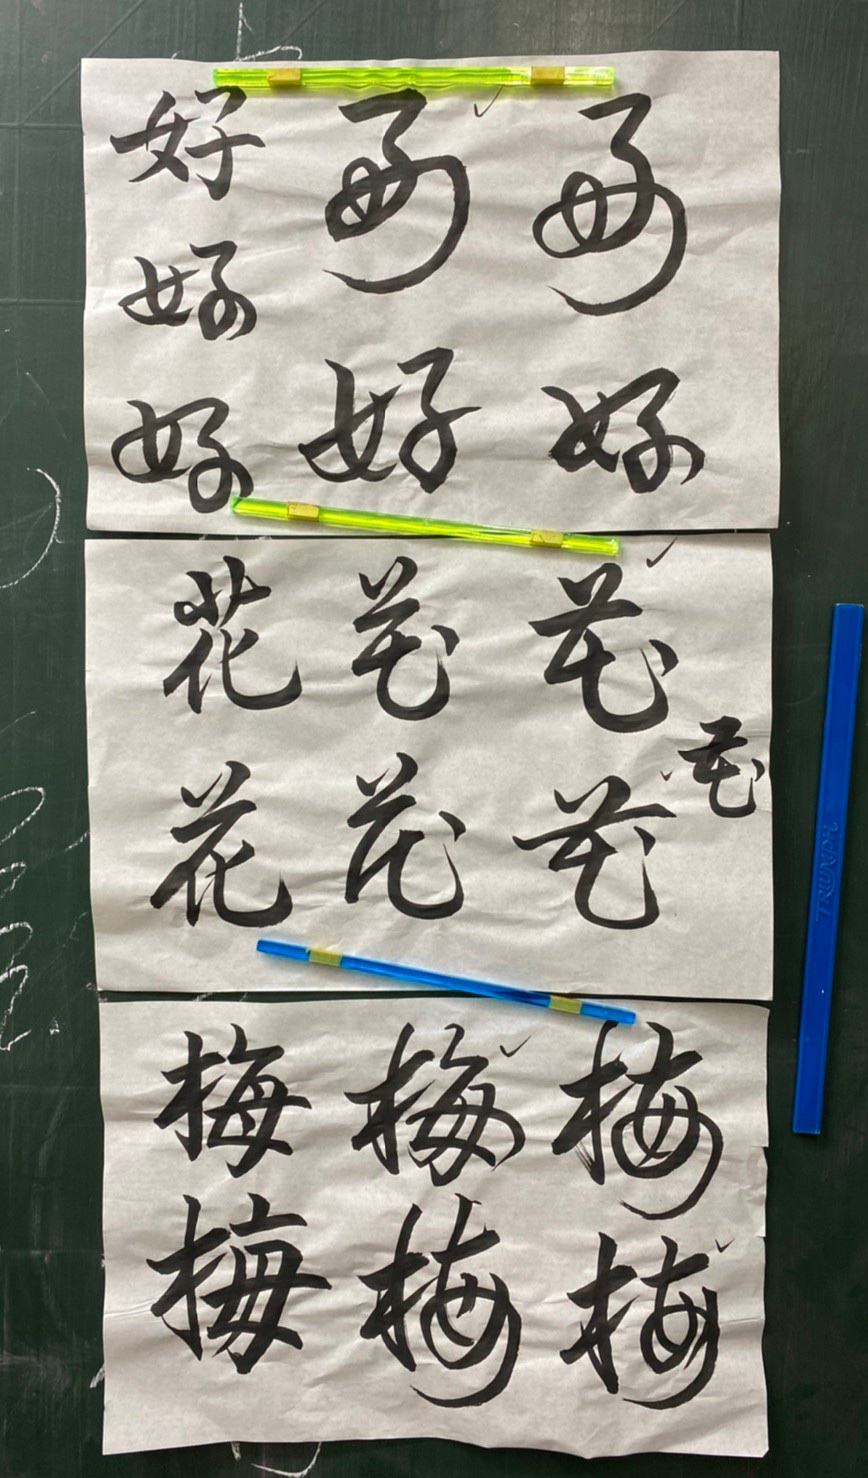 好 好 好
好
好 好 好
花 花 花
花
花 花 花
TRIUMPH
梅 梅 梅
梅 梅 梅